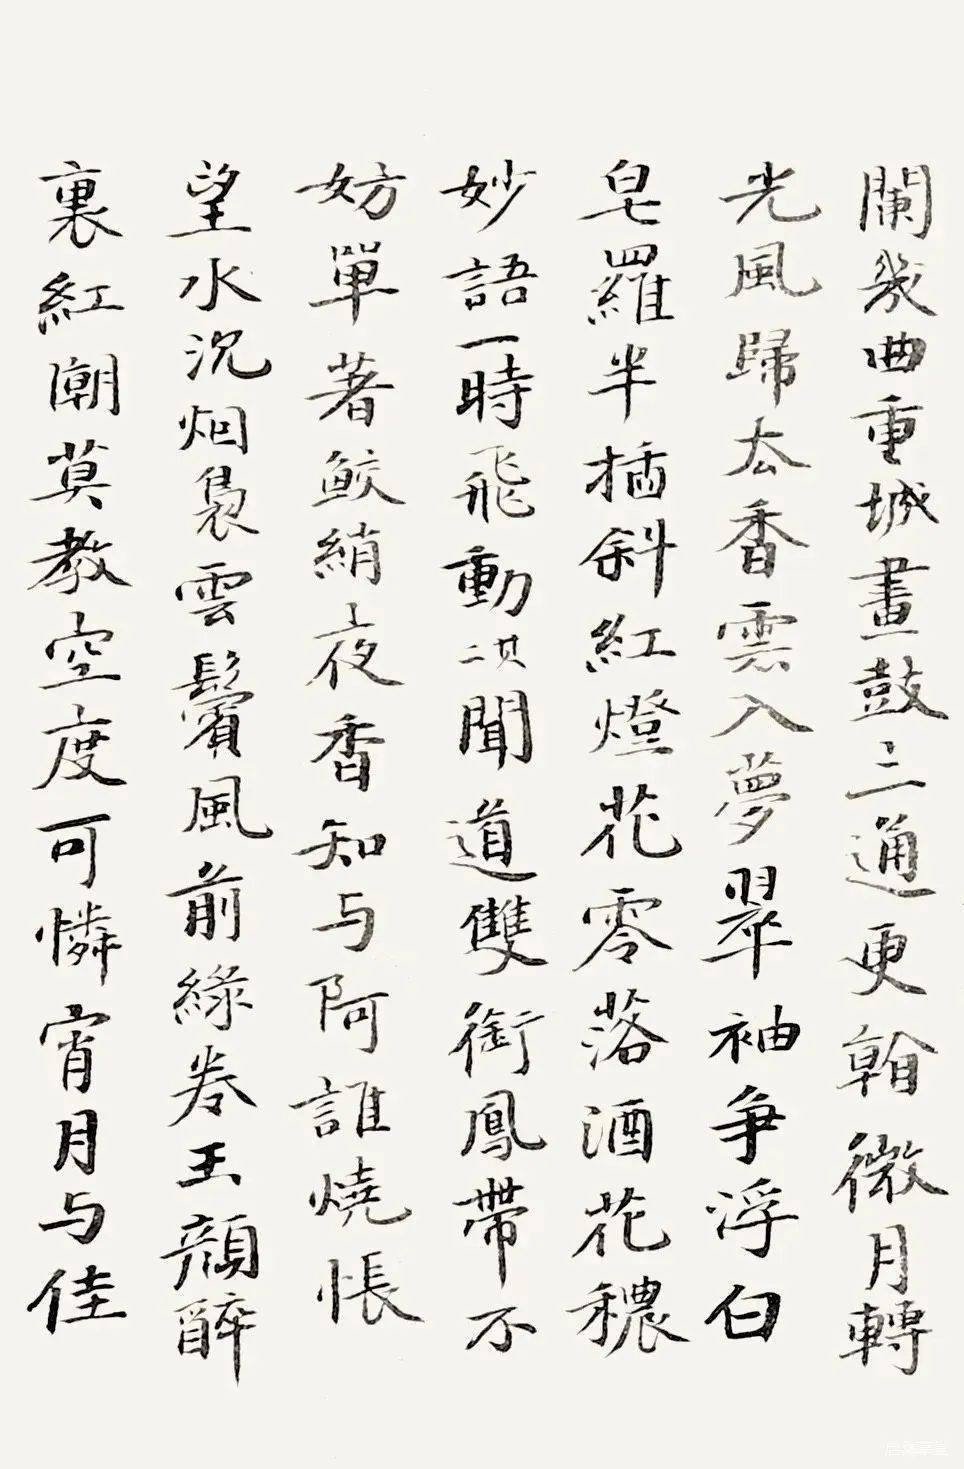 闌幾曲重城畫鼓三通更看微月轉
光風歸去香雲入夢翠袖爭浮白
皂羅半插斜紅燈花零落酒花穠
妙語一時飛動其二聞道雙銜鳳帶不
妨單著鮫綃夜香知与阿誰燒悵
望水沉烟裊雲鬢風前綠卷玉顏醉
裏紅潮莫教空度可憐宵月与佳